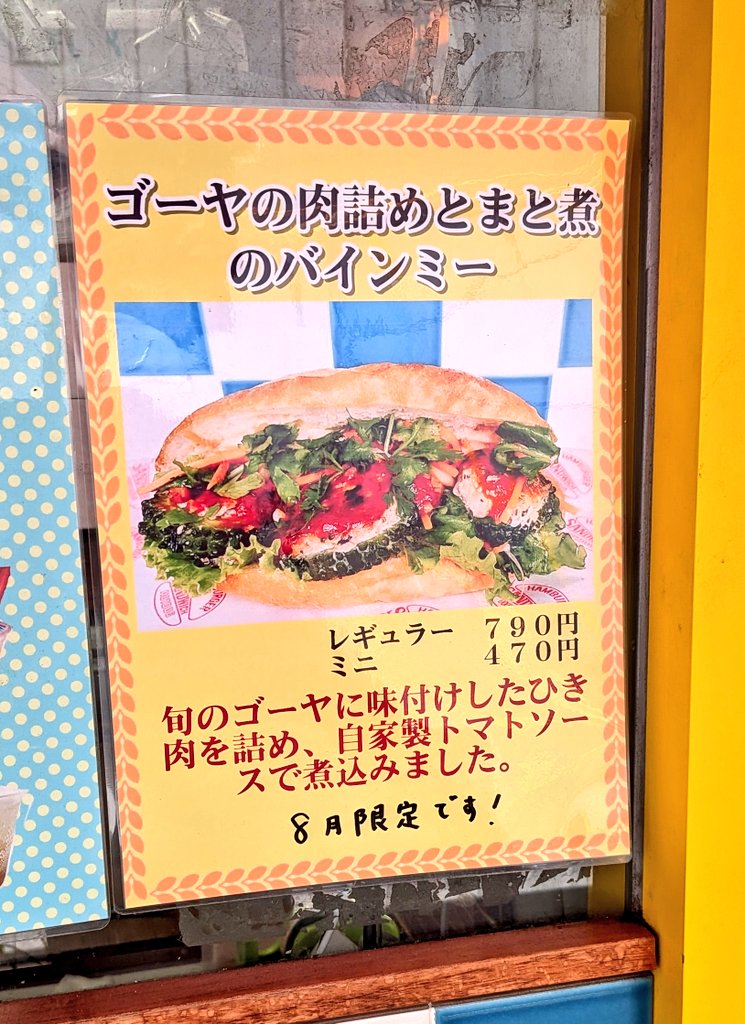 ゴーヤの肉詰めとまと煮
のバインミー
レギュラー 790円
ミニ 470円
旬のゴーヤに味付けしたひき
肉を詰め、自家製トマトソー
スで煮込みました。
8月限定です!